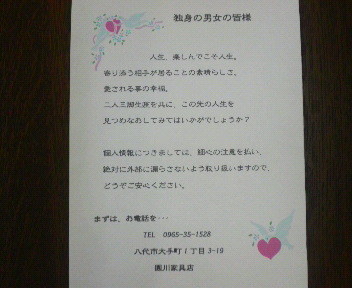 独身の男女の皆様
人生、楽しんでこそ人生。
寄り添う相手が居ることの素晴らしさ。
愛される事の幸福。
二人三脚生涯を共に、この先の人生を
見つめなおしてみてはいかがでしょうか？
個人情報につきましては、細心の注意を払い、
絶対に外部に漏らさないよう取り扱いますので、
どうぞご安心ください。
まずは、お電話を・・・
TEL 0965-35-1528
八代市大手町1丁目3-19
園川家具店